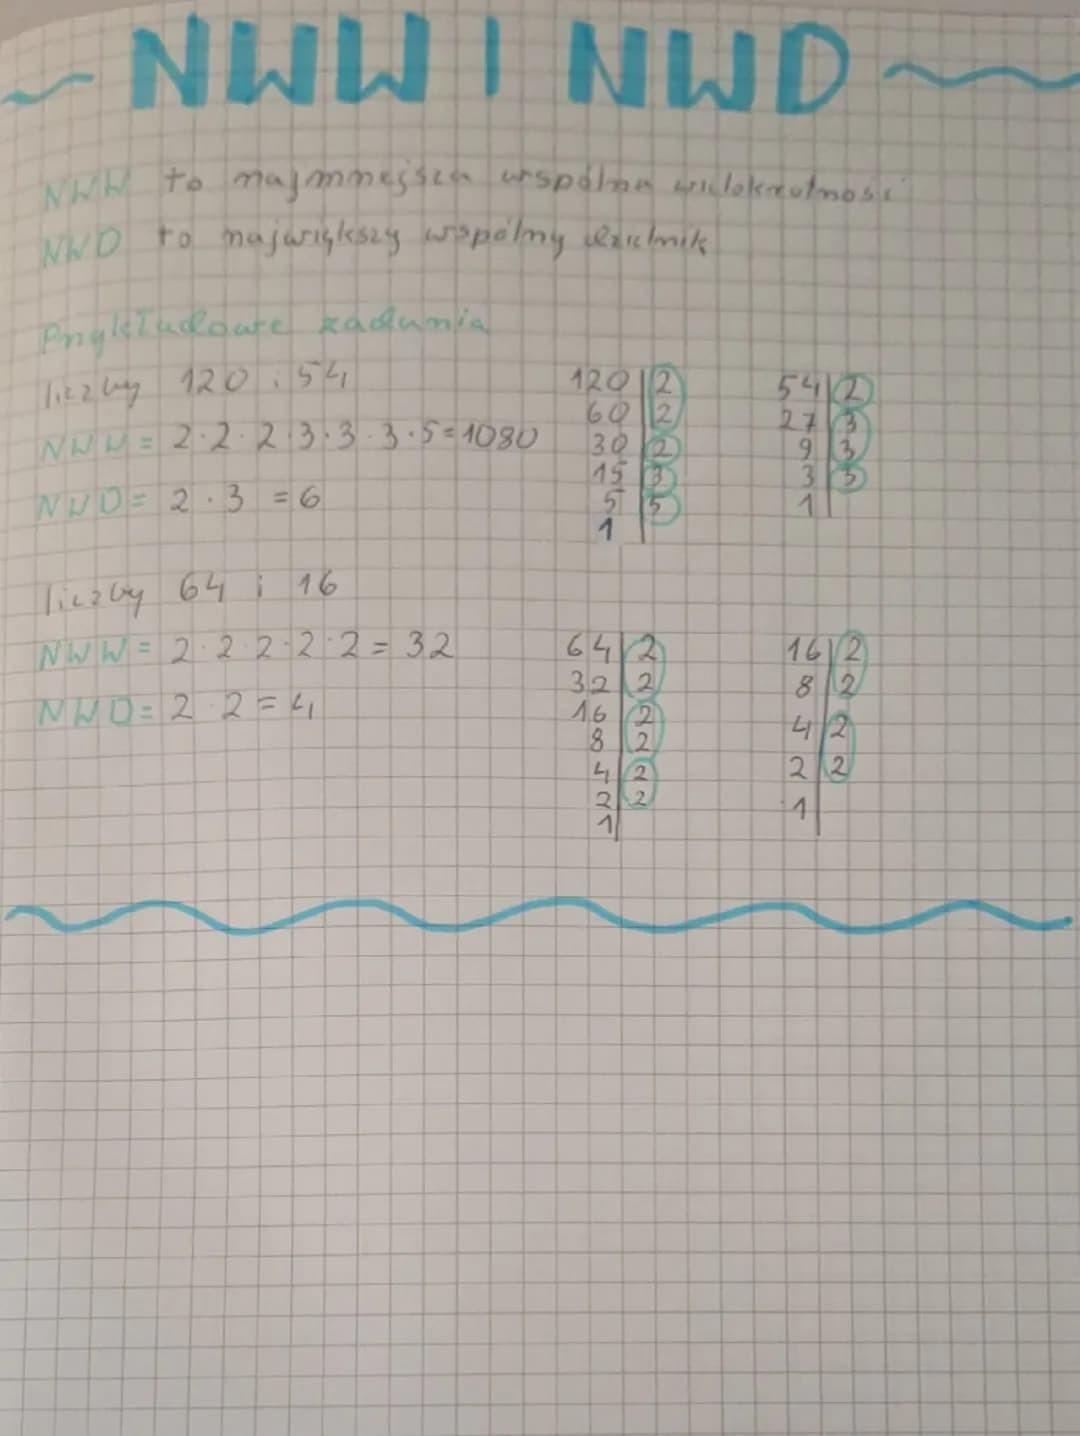 NWW I NWD
NWW to najmniejsza wspólna wielokrotność
NWD to największy wspólny dzielnik
Przykładowe zadania
liczby 120 i 54
NWW = 2·2·2·3·3·3·5=1080
NWD= 2·3 =6
120 2
60 2
30 2
15 3
5 5
1
54 2
27 3
9 3
3 3
1
liczby 64 i 16
NWW = 2·2·2·2·2 = 32
NWD= 2·2=4
64 2
32 2
16 2
8 2
4 2
2 2
1
16 2
8 2
4 2
2 2
1